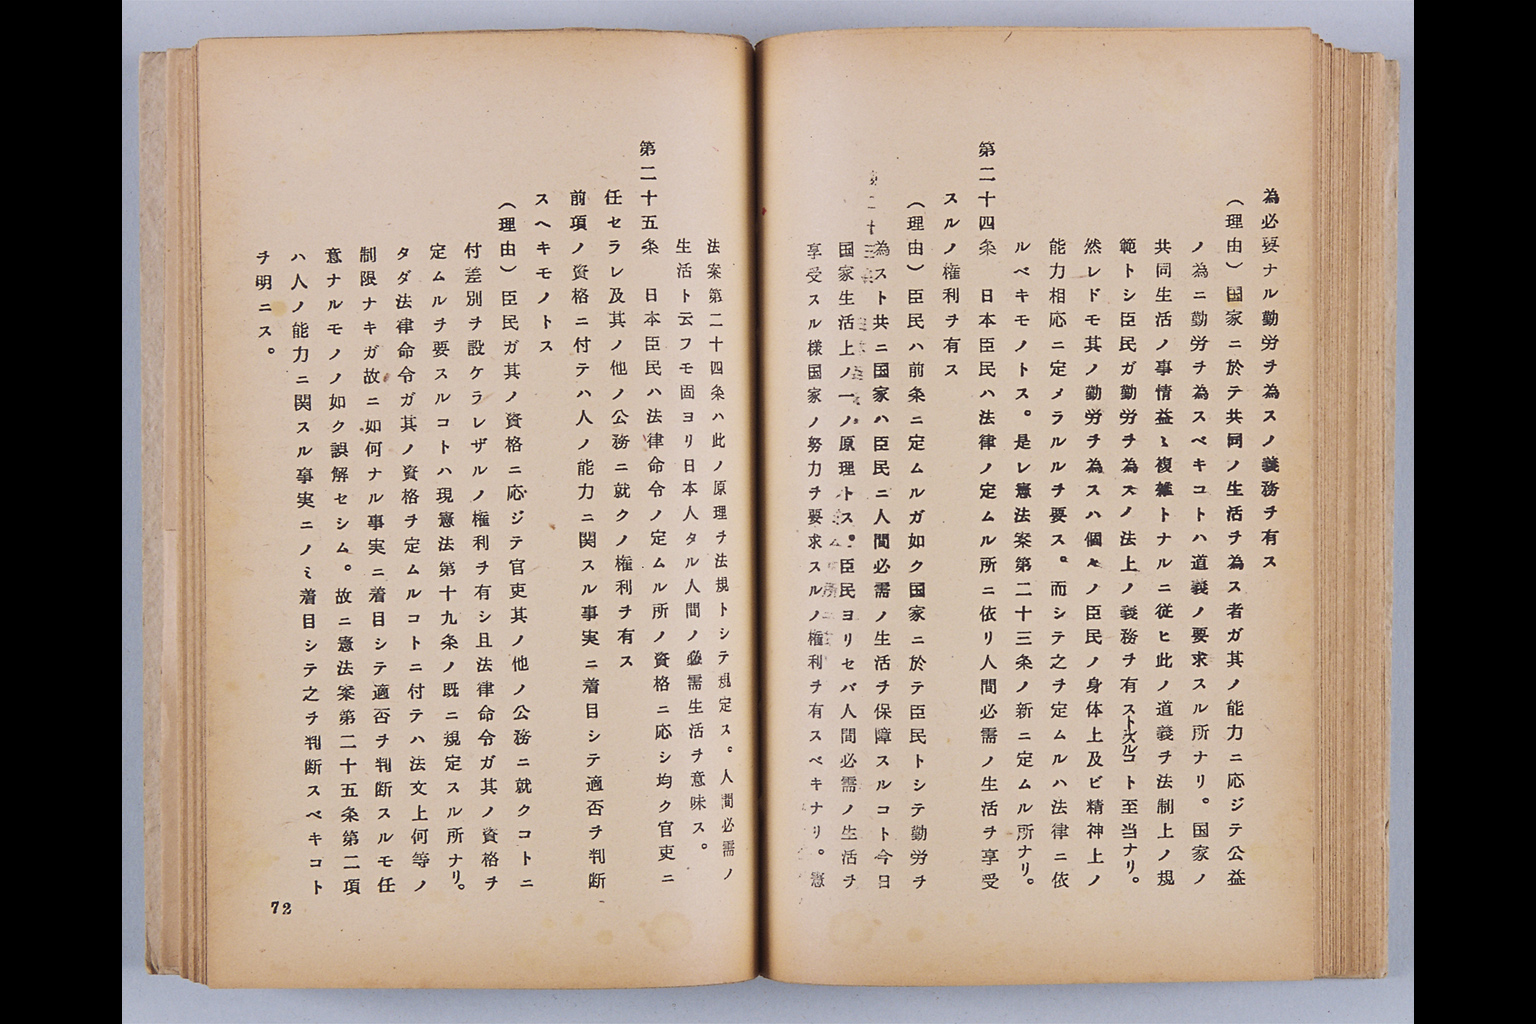 為必要ナル勤労ヲ為スノ義務ヲ有ス
（理由）国家ニ於テ共同ノ生活ヲ為ス者ガ其ノ能力ニ応ジテ公益
ノ為ニ勤労ヲ為スベキコトハ道義ノ要求スル所ナリ。国家ノ
共同生活ノ事情益〻複雑トナルニ従ヒ此ノ道義ヲ法制上ノ規
範トシ臣民ガ勤労ヲ為スノ法上ノ義務ヲ有ストスルコト至当ナリ。
然レドモ其ノ勤労ヲ為スハ個々ノ臣民ノ身体上及ビ精神上ノ
能力相応ニ定メラルルヲ要ス。而シテ之ヲ定ムルハ法律ニ依
ルベキモノトス。是レ憲法案第二十三条ノ新ニ定ムル所ナリ。
第二十四条　日本臣民ハ法律ノ定ムル所ニ依リ人間必需ノ生活ヲ享受
スルノ権利ヲ有ス
（理由）臣民ハ前条ニ定ムルガ如ク国家ニ於テ臣民トシテ勤労ヲ
為スト共ニ国家ハ臣民ニ人間必需ノ生活ヲ保障スルコト今日
国家生活上ノ一ノ原理トス。臣民ヨリセバ人間必需ノ生活ヲ
享受スル様国家ノ努力ヲ要求スルノ権利ヲ有スベキナリ。憲
法案第二十四条ハ此ノ原理ヲ法規トシテ規定ス。人間必需ノ
生活ト云フモ固ヨリ日本人タル人間ノ必需生活ヲ意味ス。
第二十五条　日本臣民ハ法律命令ノ定ムル所ノ資格ニ応シ均ク官吏ニ
任セラレ及其ノ他ノ公務ニ就クノ権利ヲ有ス
前項ノ資格ニ付テハ人ノ能力ニ関スル事実ニ着目シテ適否ヲ判断
スヘキモノトス
（理由）臣民ガ其ノ資格ニ応ジテ官吏其ノ他ノ公務ニ就クコトニ
付差別ヲ設ケラレザルノ権利ヲ有シ且法律命令ガ其ノ資格ヲ
定ムルヲ要スルコトハ現憲法第十九条ノ既ニ規定スル所ナリ。
タダ法律命令ガ其ノ資格ヲ定ムルコトニ付テハ法文上何等ノ
制限ナキガ故ニ如何ナル事実ニ着目シテ適否ヲ判断スルモ任
意ナルモノノ如ク誤解セシム。故ニ憲法案第二十五条第二項
ハ人ノ能力ニ関スル事実ニノミ着目シテ之ヲ判断スベキコト
ヲ明ニス。
72